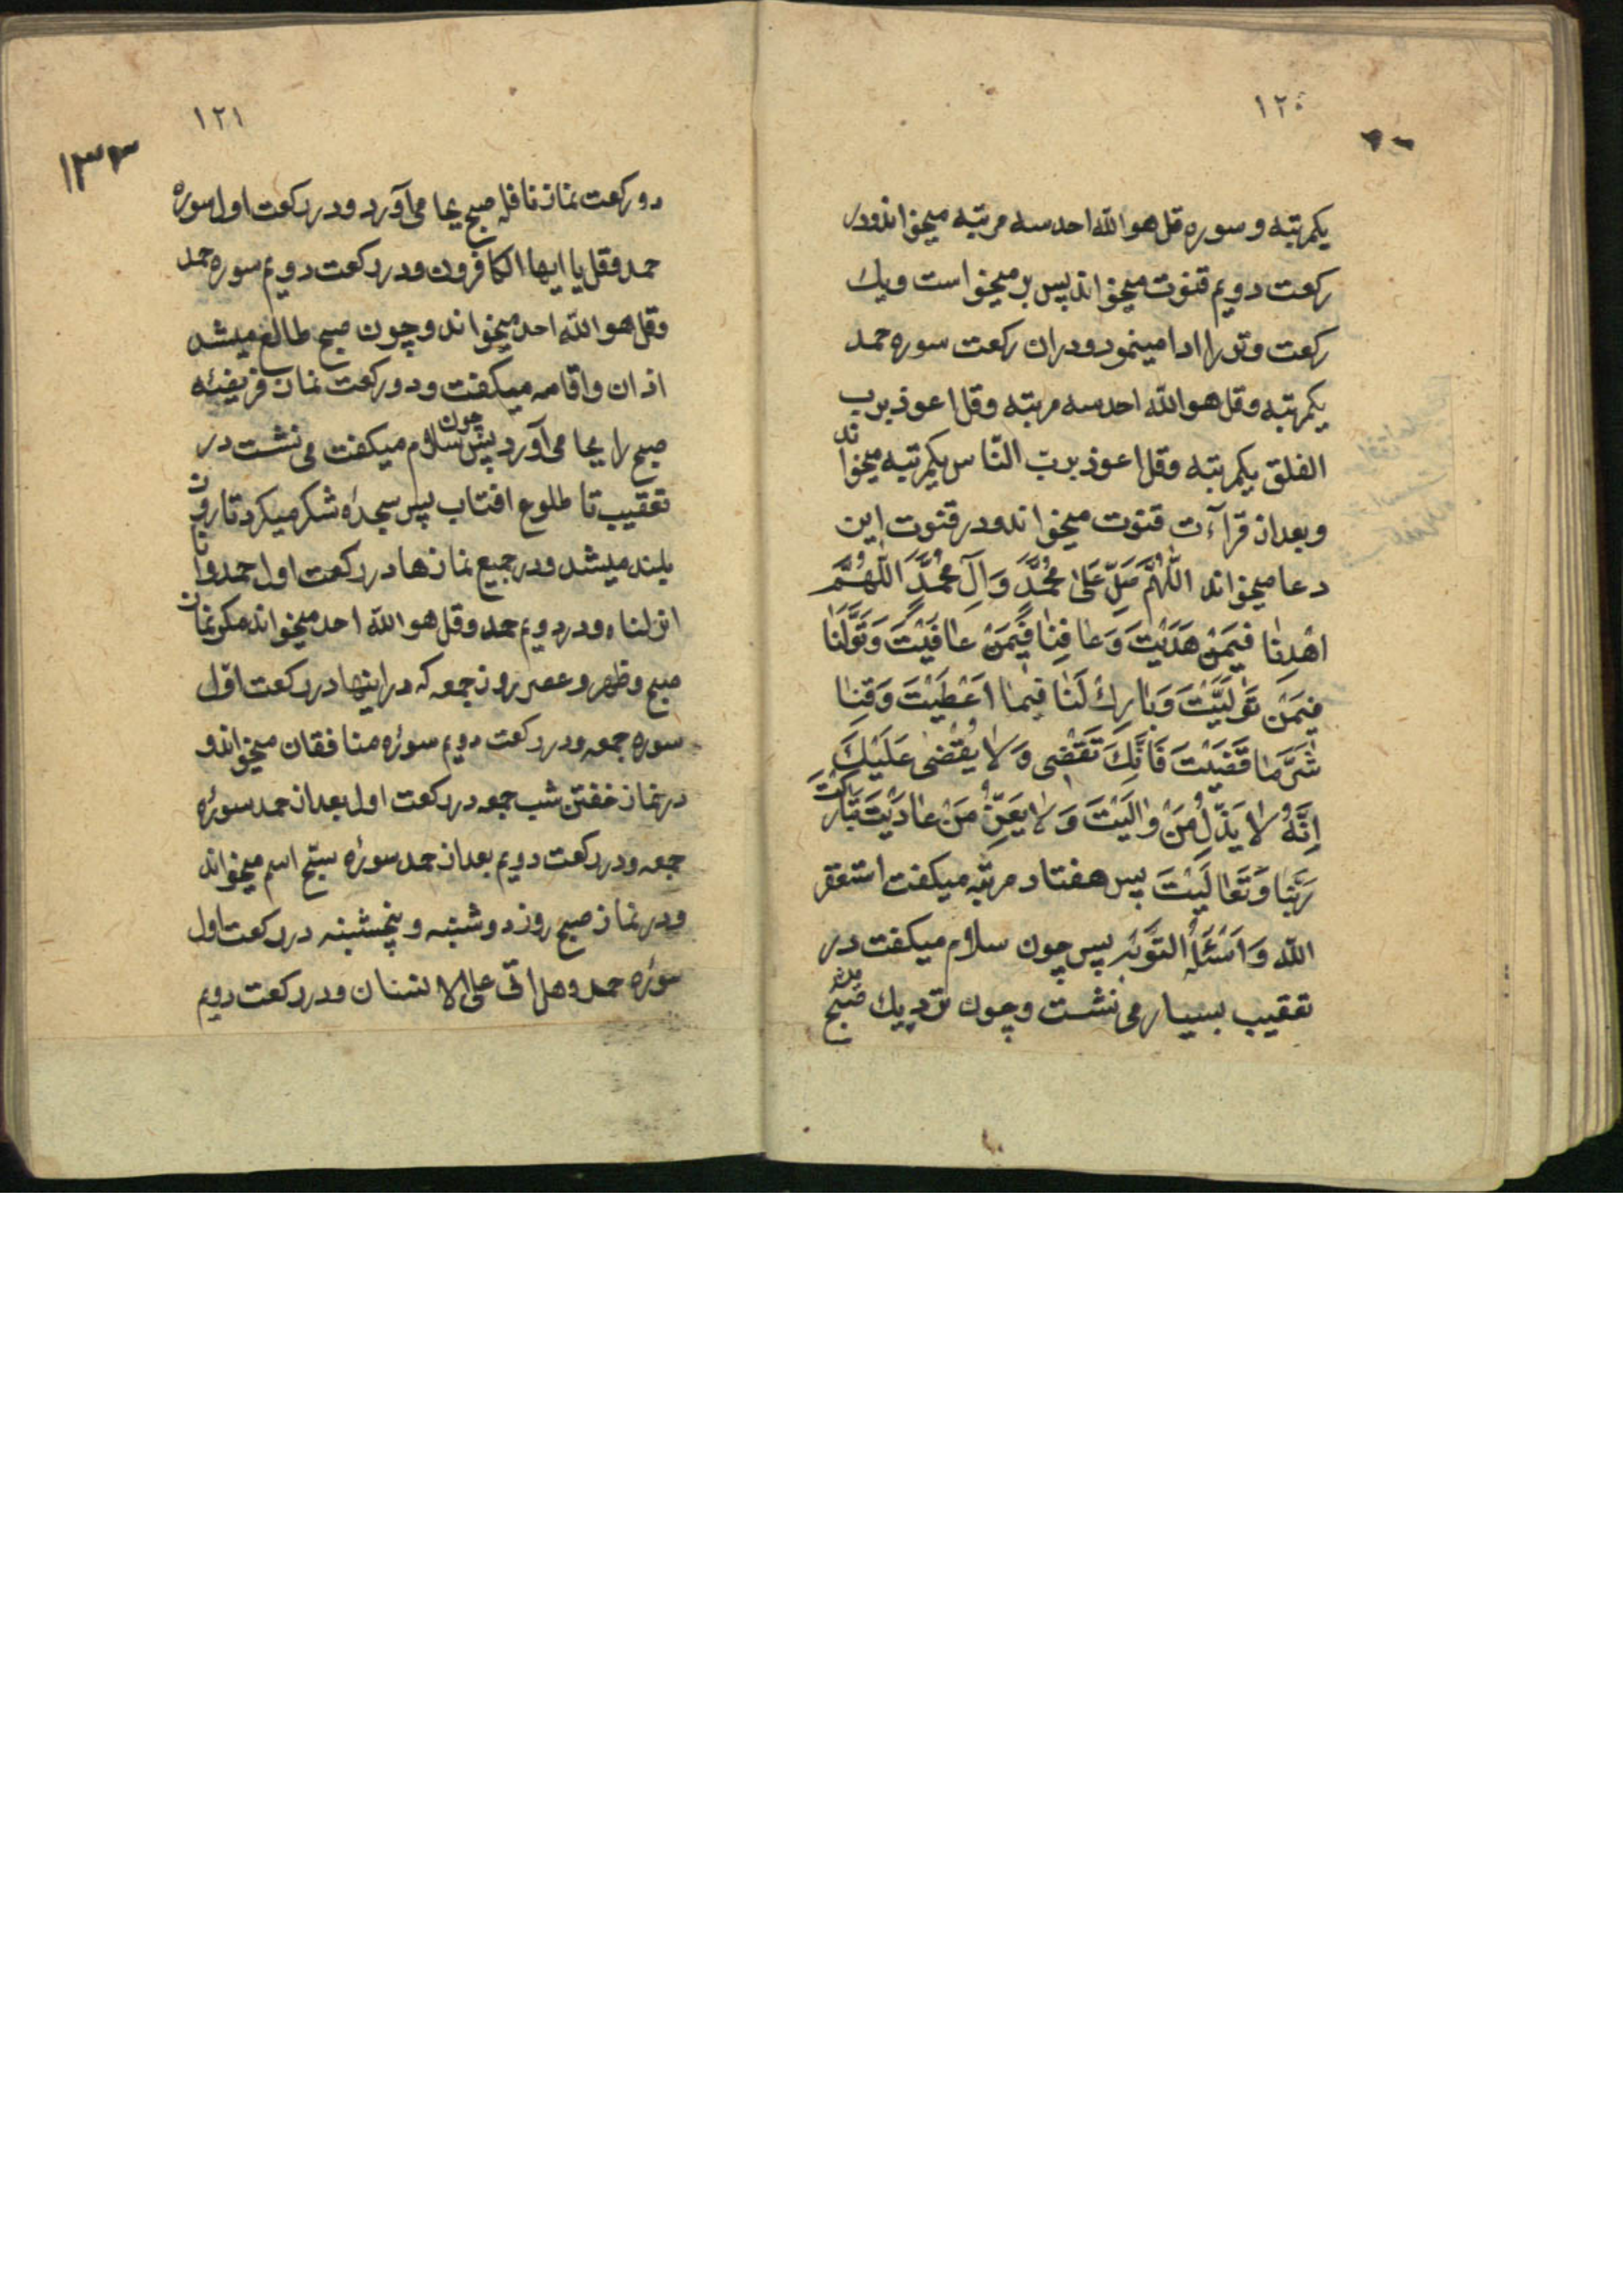 ۱۲۰
یکمرتبه و سوره قل هو الله احد سه مرتبه میخواند و در
رکعت دویم قنوت میخواند پس بر میخواست و یك
رکعت وتر را ادا مینمود و در ان رکعت سوره حمد
یکمرتبه و قل هو الله احد سه مرتبه و قل اعوذ برب
الفلق یکمرتبه و قل اعوذ برب النّاس یکمرتبه میخواند
و بعد از قرآءت قنوت میخواند و در قنوت این
دعا میخواند اَللّٰهُمَّ صَلِّ عَلیٰ مُحَمَّدٍ وَ آلِ مُحَمَّدٍ اَللّٰهُمَّ
اهْدِنٰا فیمَنْ هَدَیْتَ وَ عٰافِنٰا فیمَنْ عٰافَیْتَ وَ تَوَلَّنٰا
فیمَنْ تَوَلَّیْتَ وَ بٰارِكْ لَنٰا فیمٰا اَعْطَیْتَ وَ قِنٰا
شَرَّ مٰا قَضَیْتَ فَاِنَّكَ تَقْضی وَ لٰا یُقْضیٰ عَلَیْكَ
اِنَّهُ لٰا یَذِلُّ مَنْ وٰالَیْتَ وَ لٰا یَعِزُّ مَنْ عٰادَیْتَ تَبٰارَكْتَ
رَبَّنٰا وَ تَعٰالَیْتَ پس هفتاد مرتبه میکفت استغفر
اللّٰه وَ اَسْئَلُهُ التَّوْبَةَ پس چون سلام میکفت در
تعقیب بسیار می نشست و چون نزدیك صبح
۱۲۱
۱۳۳
دو رکعت نماز نافله صبح بجا می آورد و در رکعت اول سوره
حمد و قل یا ایها الکافرون و در رکعت دویم سوره حمد
و قل هو الله احد میخواند و چون صبح طالع میشد
اذان و اقامه میکفت و دو رکعت نماز فریضه
صبح را بجا می آورد پس چون سلام میکفت می نشست در
تعقیب تا طلوع افتاب پس سجدهٔ شکر میکرد تا روز
بلند میشد و در جمیع نمازها در رکعت اول حمد و انا
انزلناه و در دویم حمد و قل هو الله احد میخواند مکر نماز
صبح و ظهر و عصر روز جمعه که در اینها در رکعت اوّل
سوره جمعه و در رکعت دویم سورهٔ منافقان میخواند و
در نماز خفتن شب جمعه در رکعت اول بعد از حمد سورهٔ
جمعه و در رکعت دویم بعد از حمد سورهٔ سبّح اسم میخواند
و در نماز صبح روز دوشنبه و پنجشنبه در رکعت اول
سورهٔ حمد و هل اتی علی الانسان و در رکعت دویم